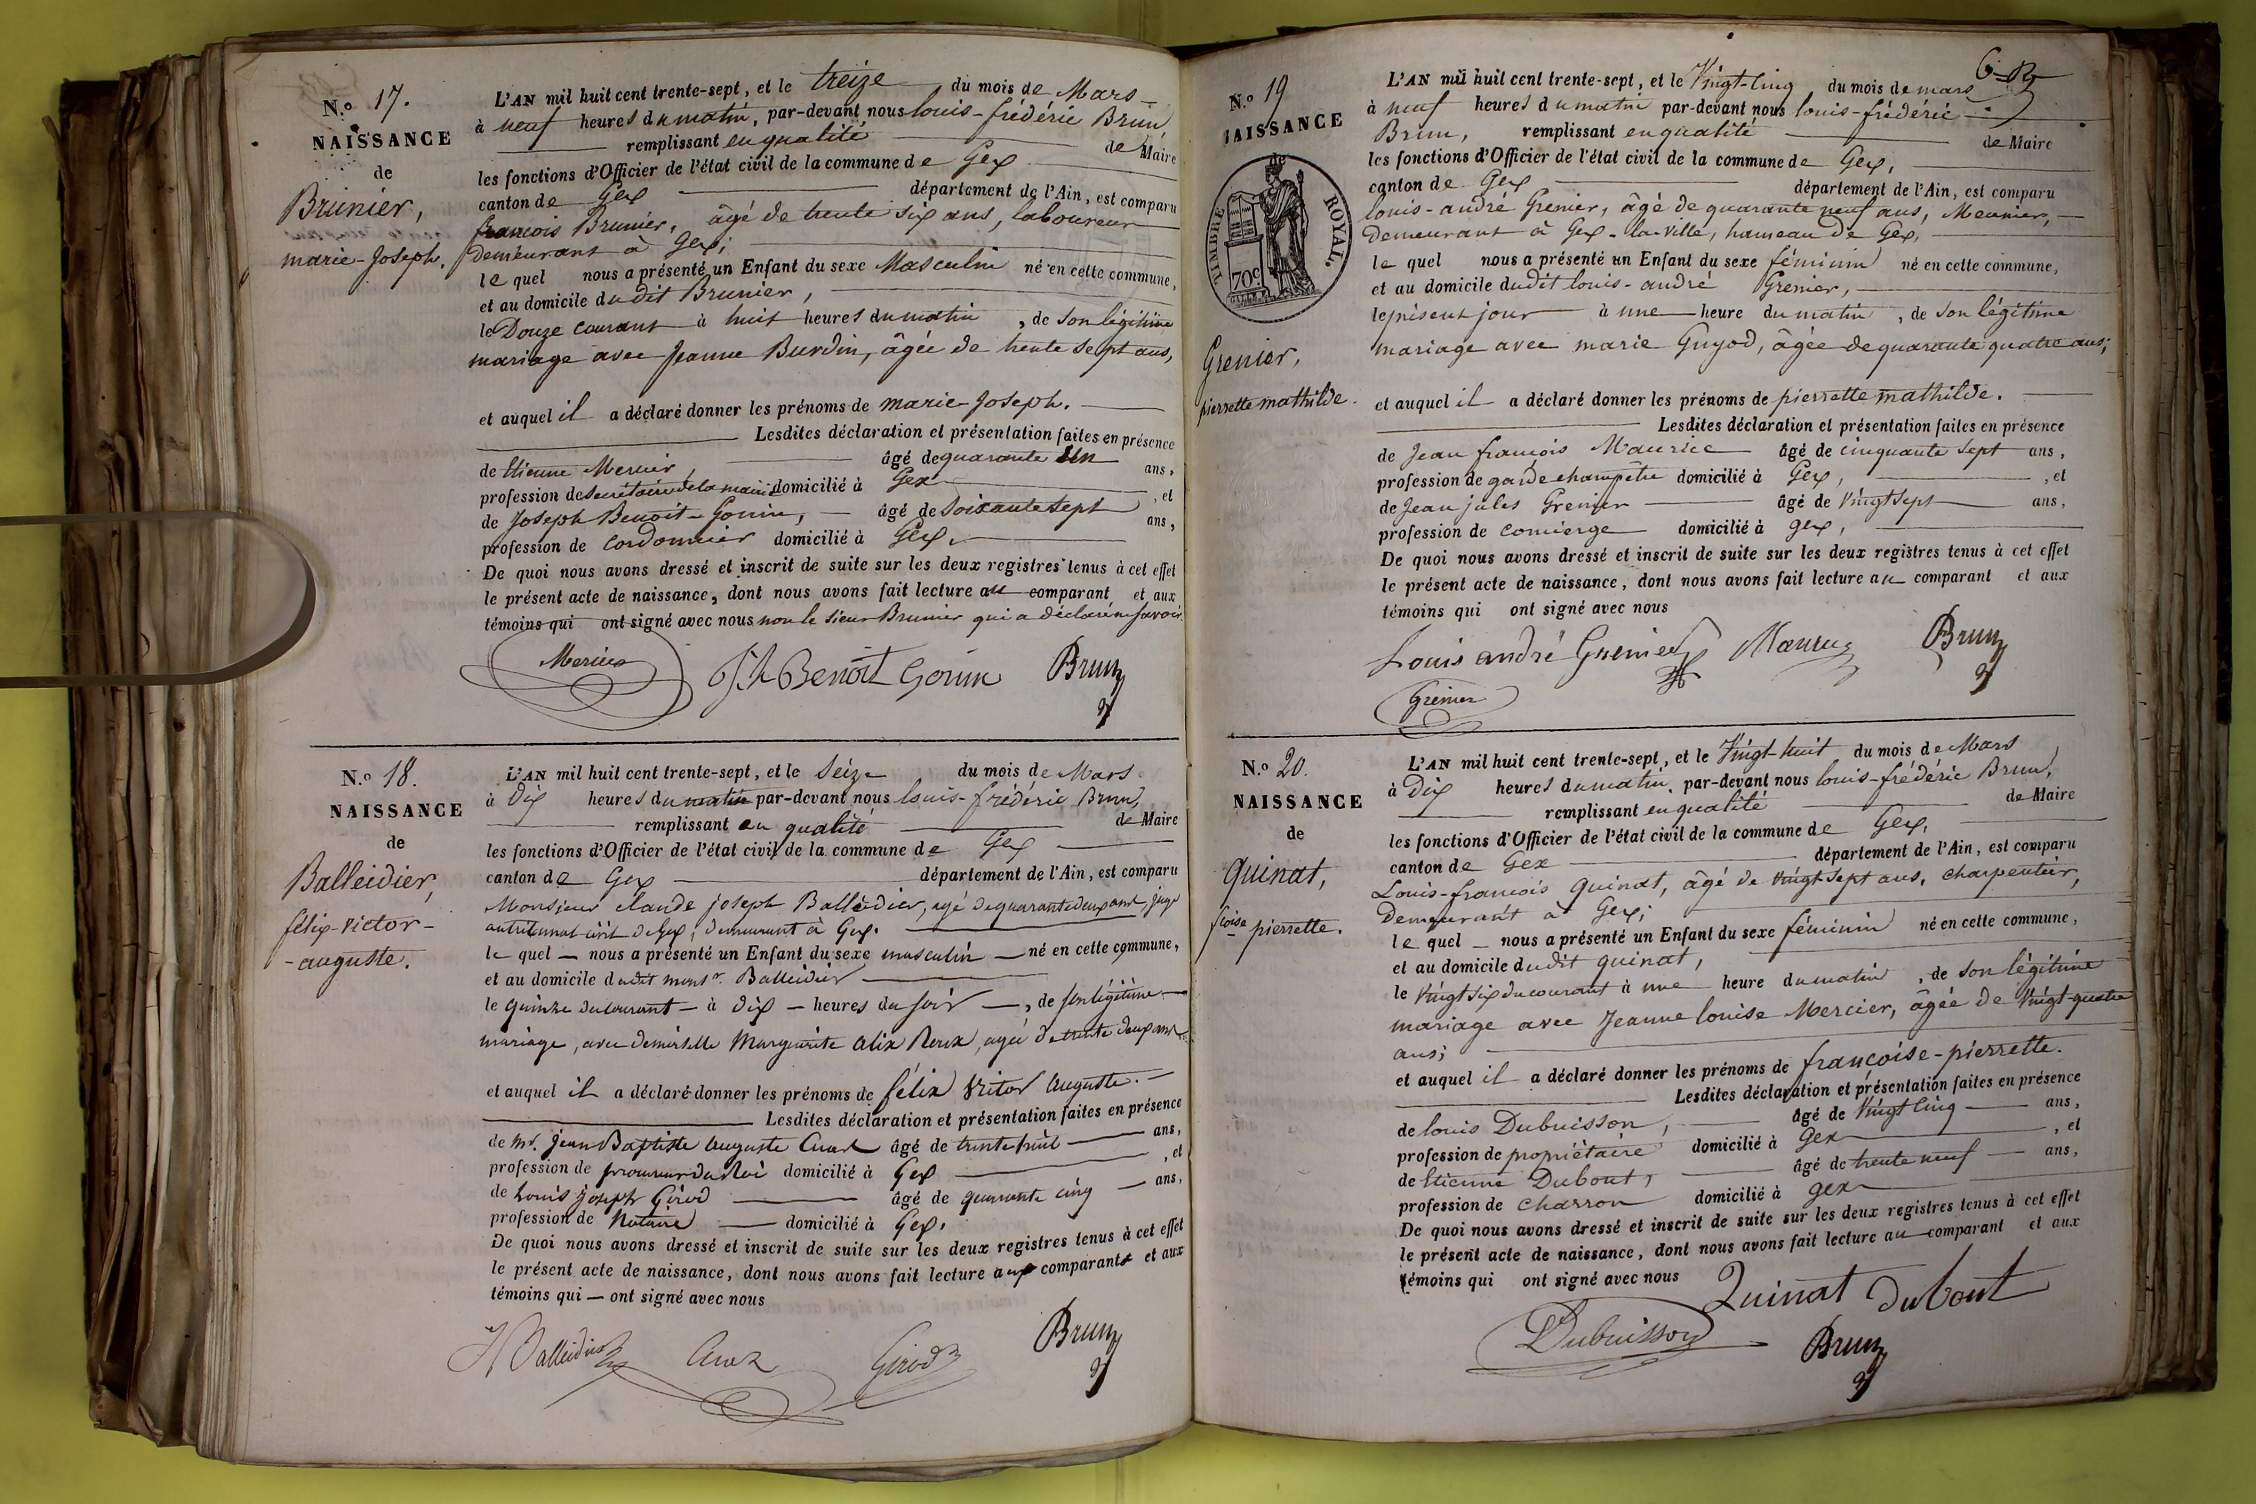 N.o 17.
NAISSANCE
de
Brunier,
marie-Joseph.
L'AN mil huit cent trente-sept, et le treize du mois de Mars
à neuf heures du matin, par-devant nous louis-frédéric Brun,
remplissant en qualité de Maire
les fonctions d'Officier de l'état civil de la commune de Gex
canton de Gex département de l'Ain, est comparu
francois Brunier, âgé de trente six ans, laboureur
demeurant à Gex;
le quel nous a présenté un Enfant du sexe Masculin né en cette commune,
et au domicile dudit Brunier,
le Douze courant à huit heures du matin, de son légitime
mariage avec Jeanne Burdin, âgée de trente sept ans,
et auquel il a déclaré donner les prénoms de marie-Joseph.
Lesdites déclaration et présentation faites en présence
de Etienne Mercier, âgé de quarante un ans,
profession de secrétaire de la mairie domicilié à Gex, et
de Joseph Benoit-Gonin, âgé de soixante sept ans,
profession de cordonnier domicilié à Gex.
De quoi nous avons dressé et inscrit de suite sur les deux registres tenus à cet effet
le présent acte de naissance, dont nous avons fait lecture au comparant et aux
témoins qui ont signé avec nous non le sieur Brunier qui a déclaré ne savoir.
Mercier Jh Benoît Gonin Brun
N.o 18.
NAISSANCE
de
Balleidier,
félix-victor-
-auguste.
L'AN mil huit cent trente-sept, et le seize du mois de Mars
à dix heures du matin par-devant nous louis-frédéric Brun,
remplissant en qualité de Maire
les fonctions d'Officier de l'état civil de la commune de Gex
canton de Gex département de l'Ain, est comparu
Monsieur claude joseph Balleidier, agé de quarante deux ans, juge
au tribunal civil de Gex, demeurant à Gex.
le quel nous a présenté un Enfant du sexe masculin né en cette commune,
et au domicile dudit monsr. Balleidier
le quinze du courant à dix heures du soir, de son légitime
mariage, avec demoiselle Marguerite alix Roux, agée de trente deux ans
et auquel il a déclaré donner les prénoms de félix victor auguste.
Lesdites déclaration et présentation faites en présence
de mr. jean Baptiste auguste Cuaz âgé de trente huit ans,
profession de procureur du Roi domicilié à Gex, et
de Louis joseph Girod âgé de quarante cinq ans,
profession de Notaire domicilié à Gex.
De quoi nous avons dressé et inscrit de suite sur les deux registres tenus à cet effet
le présent acte de naissance, dont nous avons fait lecture aux comparants et aux
témoins qui ont signé avec nous
Balleidier Cuaz Girod Brun
N.o 19
NAISSANCE
de
TIMBRE ROYAL.
70c
Grenier,
pierrette mathilde.
L'AN mil huit cent trente-sept, et le Vingt-cinq du mois de mars
à neuf heures du matin par-devant nous louis-frédéric
Brun, remplissant en qualité de Maire
les fonctions d'Officier de l'état civil de la commune de Gex,
canton de Gex département de l'Ain, est comparu
louis-andré Grenier, âgé de quarante neuf ans, Meunier,
demeurant à Gex-la-ville, hameau de Gex,
le quel nous a présenté un Enfant du sexe féminin né en cette commune,
et au domicile dudit louis-andré Grenier,
le présent jour à une heure du matin, de son légitime
mariage avec marie Guyod, âgée de quarante quatre ans;
et auquel il a déclaré donner les prénoms de pierrette mathilde.
Lesdites déclaration et présentation faites en présence
de Jean françois Maurice âgé de cinquante sept ans,
profession de garde champêtre domicilié à Gex, et
de Jean jules Grenier âgé de vingt sept ans,
profession de concierge domicilié à gex,
De quoi nous avons dressé et inscrit de suite sur les deux registres tenus à cet effet
le présent acte de naissance, dont nous avons fait lecture au comparant et aux
témoins qui ont signé avec nous
Louis andré Grenier Maurice Brun
Grenier
N.o 20.
NAISSANCE
de
Quinat,
fcoise pierrette.
L'AN mil huit cent trente-sept, et le Vingt-huit du mois de Mars
à Dix heures du matin, par-devant nous louis-frédéric Brun,
remplissant en qualité de Maire
les fonctions d'Officier de l'état civil de la commune de Gex,
canton de Gex département de l'Ain, est comparu
Louis-francois Quinat, âgé de vingt sept ans, charpentier,
demeurant à Gex;
le quel nous a présenté un Enfant du sexe féminin né en cette commune,
et au domicile dudit Quinat,
le vingt six du courant à une heure du matin, de son légitime
mariage avec Jeanne louise Mercier, âgée de vingt-quatre
ans;
et auquel il a déclaré donner les prénoms de françoise-pierrette.
Lesdites déclaration et présentation faites en présence
de louis Dubuisson, âgé de vingt cinq ans,
profession de propriétaire domicilié à Gex, et
de Etienne Dubout, âgé de trente neuf ans,
profession de charron domicilié à gex
De quoi nous avons dressé et inscrit de suite sur les deux registres tenus à cet effet
le présent acte de naissance, dont nous avons fait lecture au comparant et aux
témoins qui ont signé avec nous
Quinat Dubout
Dubuisson Brun